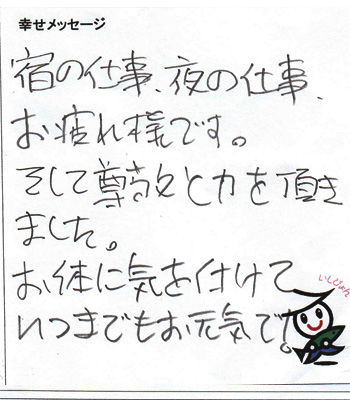 幸せメッセージ
宿の仕事、夜の仕事、
お疲れ様です。
そして尊敬と力を頂き
ました。
お体に気を付けて
いつまでもお元気で!
いしぴょん